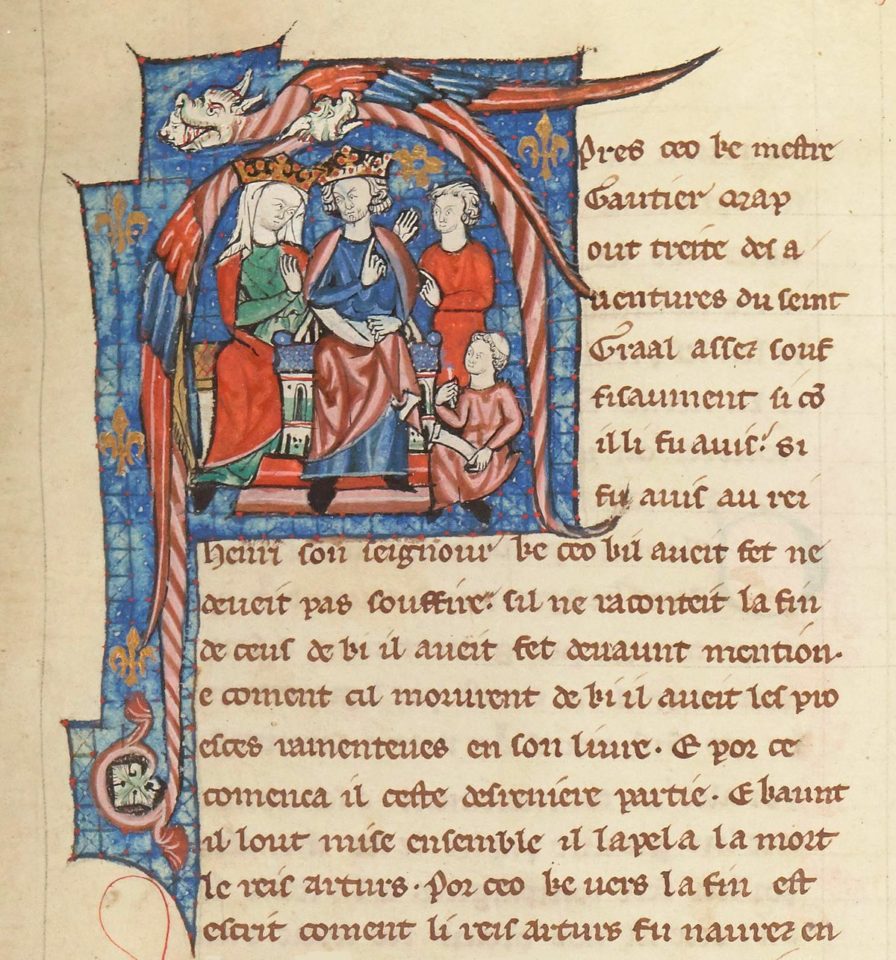 Apres ceo ke mestre
Gautier Map
out treite des a
uentures du seint
Graal assez souf
fisaument si cō
il li fu auis. si
fu auis au rei
henri son seignour ke ceo kil aueit fet ne
deueit pas souffire. sil ne raconteit la fin
de ceus de ki il aueit fet deuaunt mention.
e coment cil morurent de ki il aueit les pro
esces ramenteues en son liure. E por ce
comenca il ceste desreniere partie. E kaunt
il lout mise ensemble il lapela la mort
le reis arturs. Por ceo ke uers la fin est
escrit coment li reis arturs fu naurez en